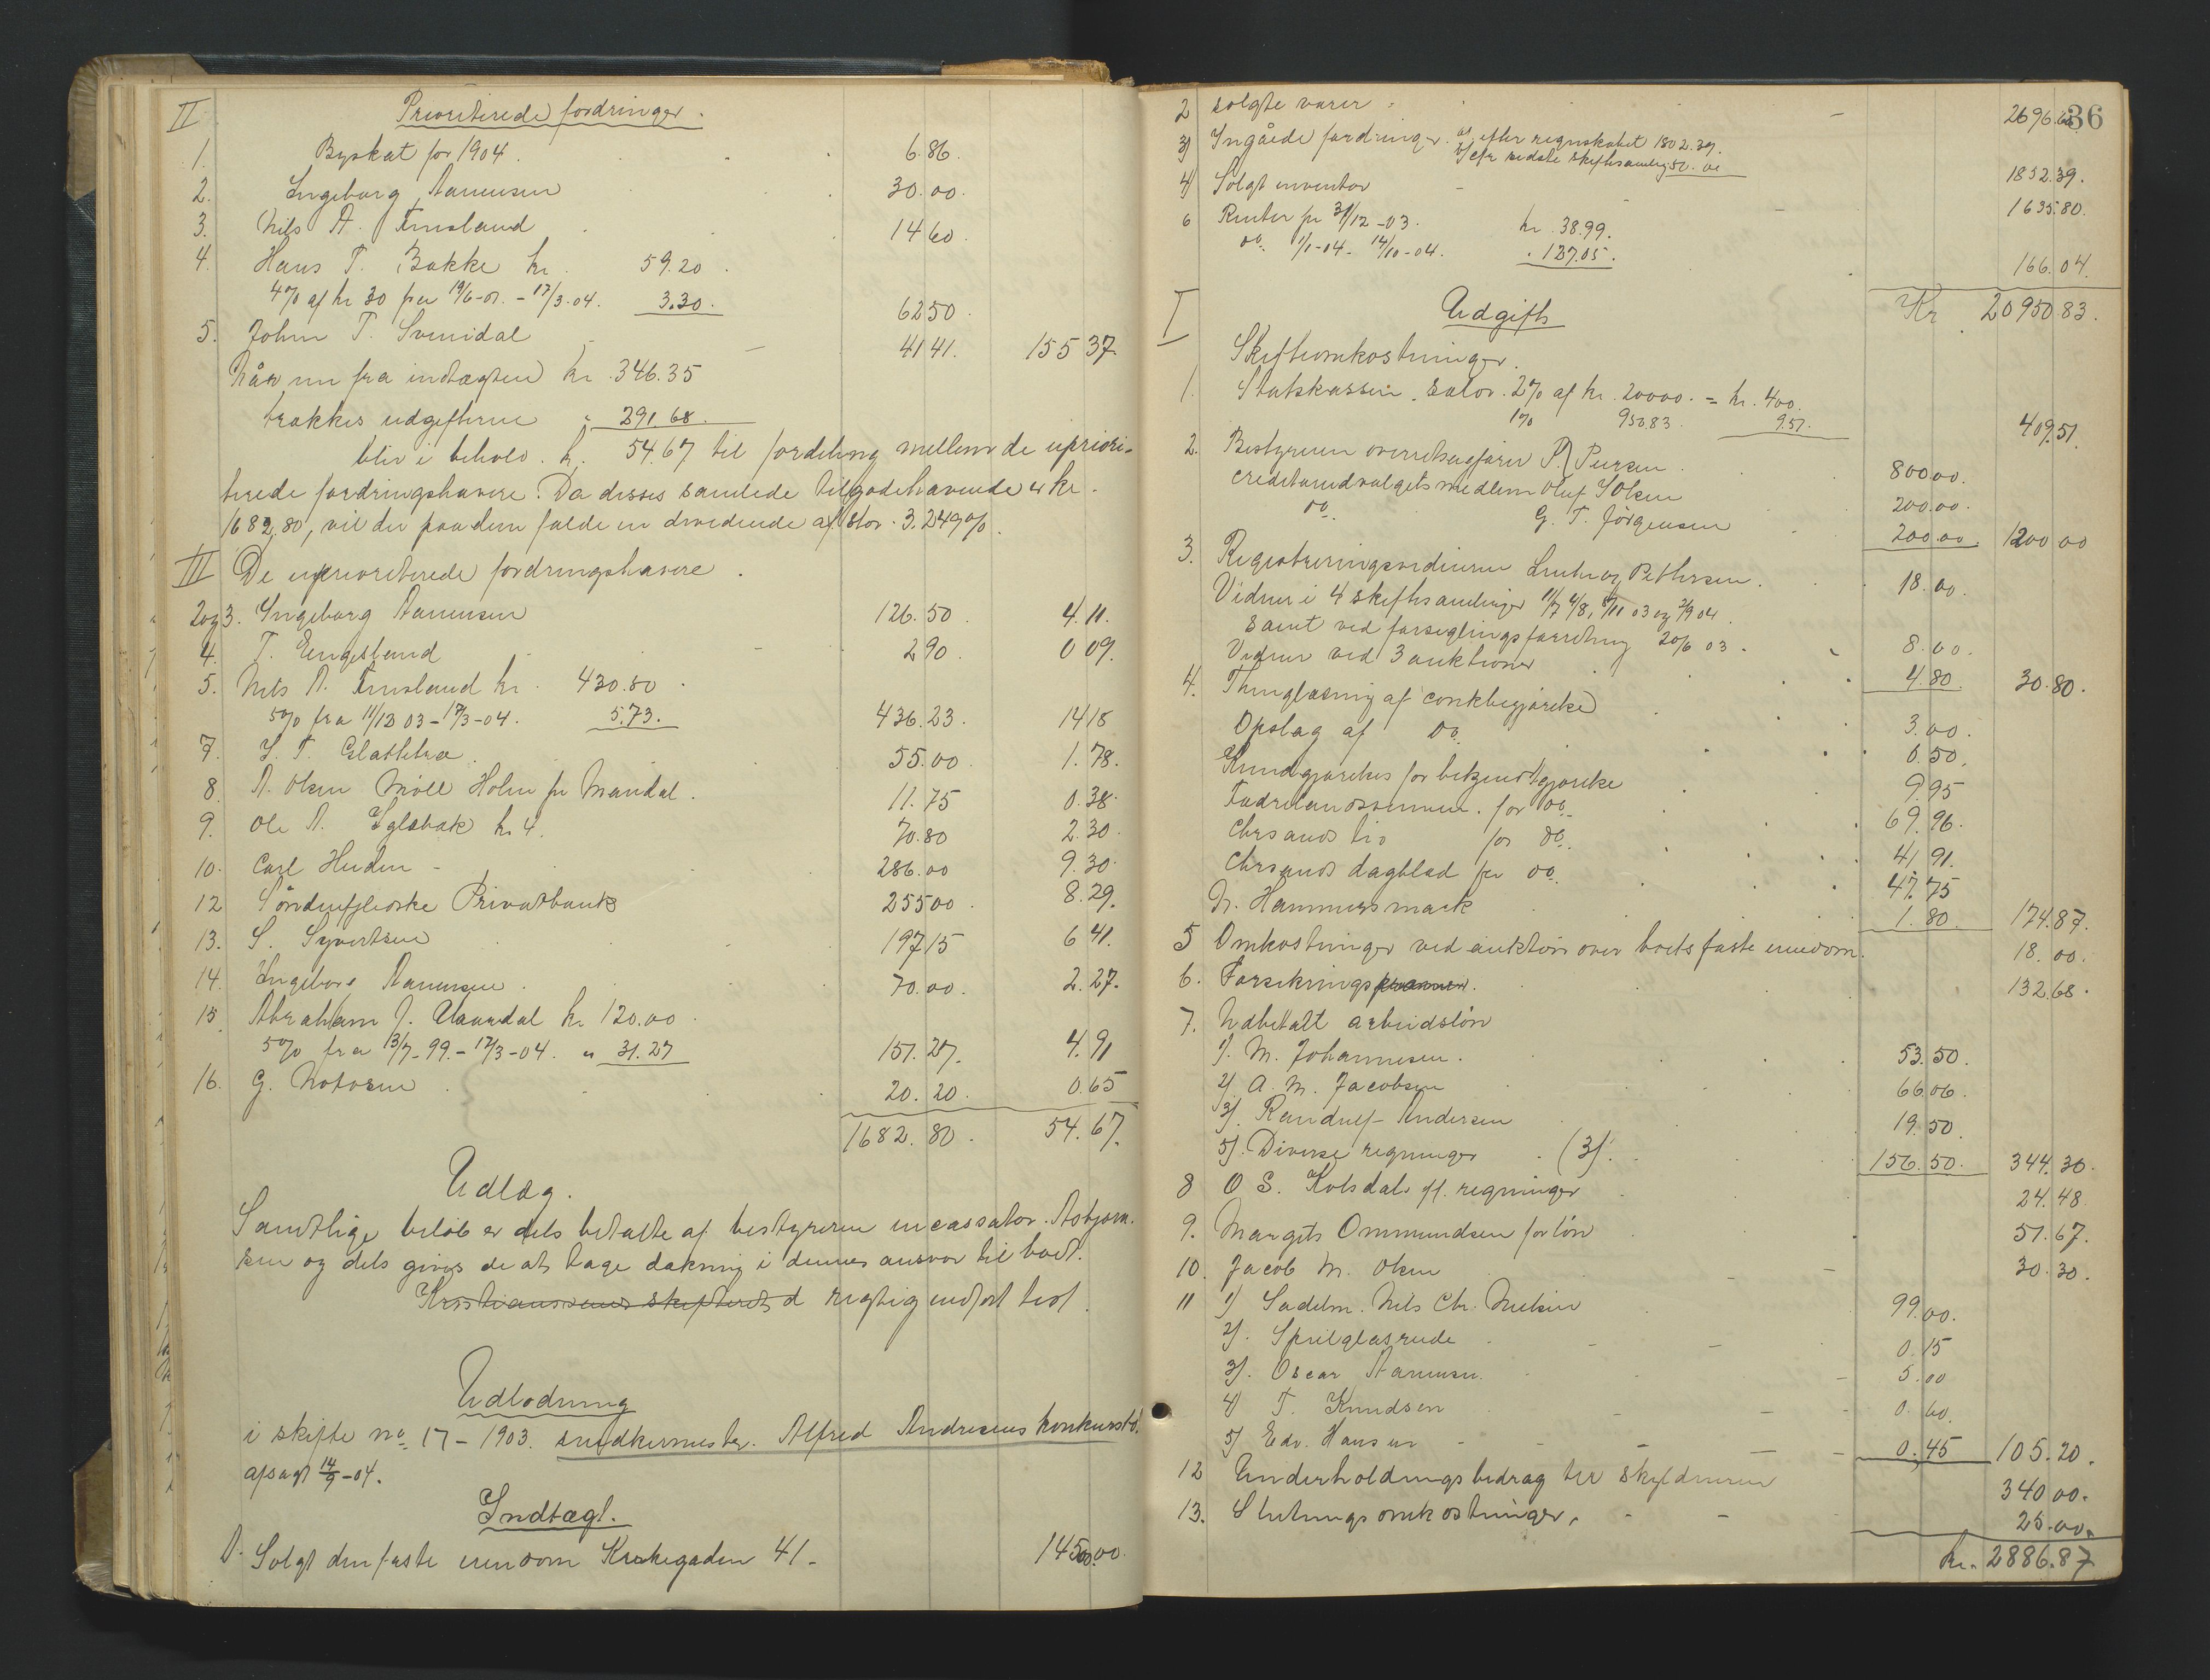 II Prioriterede fordringer.
1. Byskat for 1904. 6.86.
2. Ingeborg Aanensen 30.00.
3. Nils A. Finsland 14 60.
4. Hans T. Bakke kr. 59.20.
4% af kr 30 fra 19/6-01. - 17/3-04. 3.30. 62 50.
5. John T. Svinidal 41 41. 155 37.
Når nu fra indtægten kr. 346.35
trækkes udgifterne " 291 68.
blir i behold. kr. 54.67 til fordeling mellem de upriori-
terede fordringshavere. Da disses samlede tilgodehavende er kr.
1682,80, vil der paa dem falde en dividende af stor. 3.249%.
III De uprioriterede fordringshavere.
2og3. Ingeborg Aanensen 126.50 4.11.
4. T. Eengesland 2 90. 0 09.
5. Nils A. Finsland kr. 430.50.
5% fra 11/12 03 - 17/3-04. 5.73. 436.23. 14 18
7. J. T. Glattetræ. 55.00. 1.78.
8. A. Olsen Möll Holm pr Mandal. 11.75 0.38.
9. Ole A. Iglebæk kr. 4. 70.80 2.30.
10. Carl Heiden - 286.00 9.30.
12 Söndenfjeldske Privatbank 255 00. 8.29.
13. S. Syvertsen 197 15 6 41.
14. Ingeborg Aanensen. 70.00. 2.27.
15. Abraham J. Aaardal kr 120.00.
5% fra 13/7-99. - 17/3-04. " 31.27 151.27. 4.91
16. G. Notosen. 20.20. 0.65
1682.80. 54.67.
Udlæg.
Samtlige beløb er dels betalte af bestyreren incassator. Asbjørn-
sen og dels gives de at tage dækning i dennes ansvar til boet.
Kristianssands skifteret d rigtig indført test.
Udlodning
i skifte no 17 - 1903. snedkermester. Alfred Andresens konkursbo.
afsagt 14/9-04.
Indtægt.
1. Solgt den faste eiendom Kirkegaden 41 - 14500.00.
36
2 solgte varer - 2696.60
3) Ingåede fordringer. a) efter regnskabet 1802.39.
b) efter sidste skiftesamling 50.00 1852.39.
4) Solgt inventar - 1635.80.
6 Renter pr 31/12-03. kr. 38.99.
do. 1/1-04 - 14/10-04. . 127.05. 166.04.
Kr. 20950 83.
I Udgift
Skifteomkostninger.
1. Statskassen. salær. 2% af kr. 20000. = kr. 400.
1% 950.83. 9.51. 409.51.
2. Bestyreren overretssagfører P. Peersen. 800.00.
creditorudvalgets medlem Oluf S Olsen 200.00.
do. G. T. Jörgensen 200.00. 1200 00
3. Registreringsvidnerne Lunde og Pettersen. 18.00.
Vidner i 4 skiftesamlinger 11/7 4/8, 5/11 03 og 3/9 04.
samt ved forseglingsforretning 20/6 03. 8.00.
Vidner ved 3 auktioner 4.80. 30.80.
4. Thinglæsning af conkbegjærelse 3.00.
Opslag af do. 0.50.
Kundgjørelses for bekjendtgjørelse 9.95
Fædrelandsvennen. for do. 69.96.
Chrsands tid for do. 41.91.
Chrsands dagblad for do. 47.75
N. Hammersmark 1.80. 174.87.
5 Omkostninger ved auktion over boets faste eiendom. 18.00.
6. Forsikringspræmier. 132.68.
7. Udbetalt arbeidslön
1). M. Johannesen. 53.50.
2) A. M. Jacobsen 66.06.
3). Randulf Andersen 19.50.
5). Diverse regninger. (3). 156.50. 344.30.
8 O S. Kolsdal. ifl. regninger 24.48
9. Margith Ommundsen for lön 51.67.
10. Jacob M. Olsen 30.30.
11 1) Sadelm. Nils Chr. Nielsen 99.00.
2). Speilglasrude 0.15
3). Oscar Aanensen. 5.00
4) T. Knudsen 0.60.
5) Edv. Hansen 0.45 105.20.
12 Underholdningsbidrag til skyldneren 340.00.
13. Slutningsomkostninger. 25.00.
Kr. 2886.87